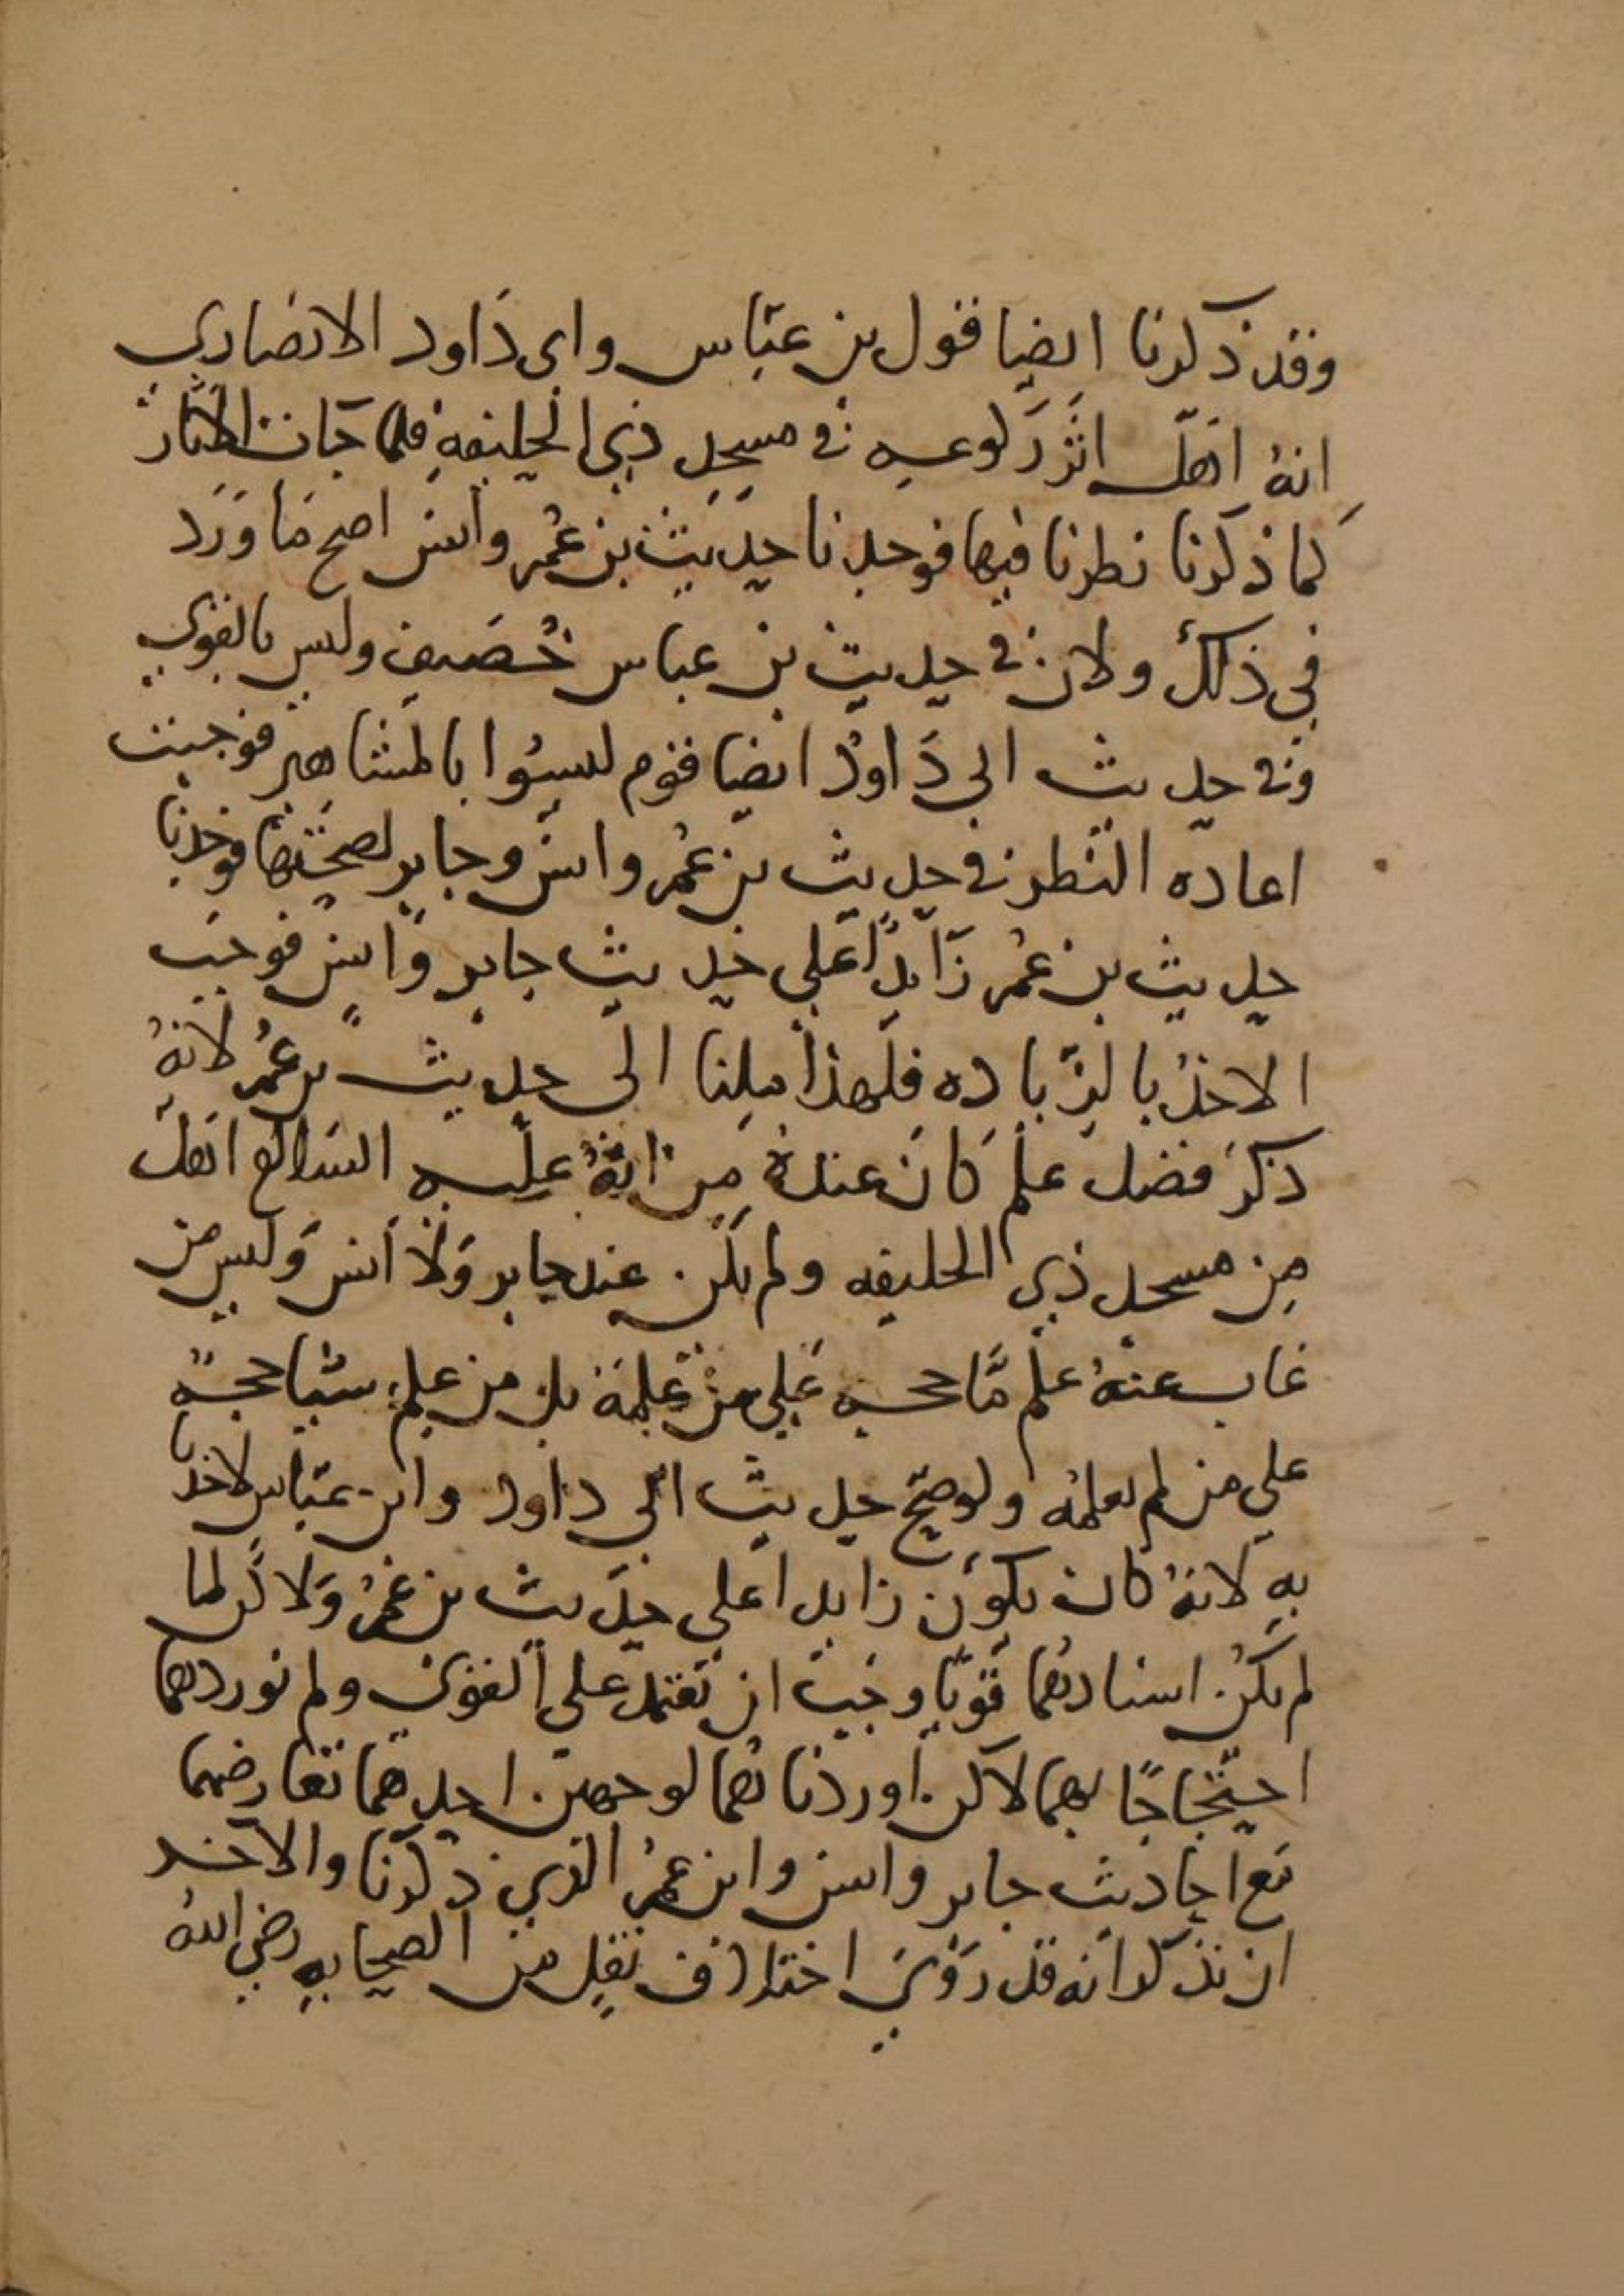 وقد ذكرنا ايضا قول بن عباس وابى داود الانصاري
انه اهل اثر ركوعه في مسجد ذي الحليفه فلما جات الاثار
كما ذكرنا نظرنا فيها فوجدنا حديث بن عمر وانس اصح ما ورد
في ذلك ولان في حديث بن عباس خصيف وليس بالقوي
وفي حديث ابي داود ايضا قوم ليسوا بالمشاهير فوجبت
اعاده النظر في حديث بن عمر وانس وجابر لصحتها فوجدنا
حديث بن عمر زايدا على حديث جابر وانس فوجب
الاخذ بالزياده فلهذا ملنا الى حديث بن عمر لانه
ذكر فضل علم كان عنده من انه عليه السلام اهل
من مسجد ذي الحليفه ولم يكن عند جابر ولا انس وليس من
غاب عنه علم ما حجه على من علمه بل من علم شيا حجه
على من لم يعلمه ولو صح حديث ابي داود وابن عباس لاخذنا
به لانه كان يكون زايدا على حديث بن عمر ولاكن لما
لم يكن اسنادهما قويا وجب ان نعتمد على القوي ولم نوردهما
احتجاجا بهما لاكن اوردناهما لوجهين احدهما تعارضهما
مع احاديث جابر وانس وابن عمر الذي ذكرنا والاخر
ان نذكر انه قد روي اختلاف نقل من الصحابه رضي الله